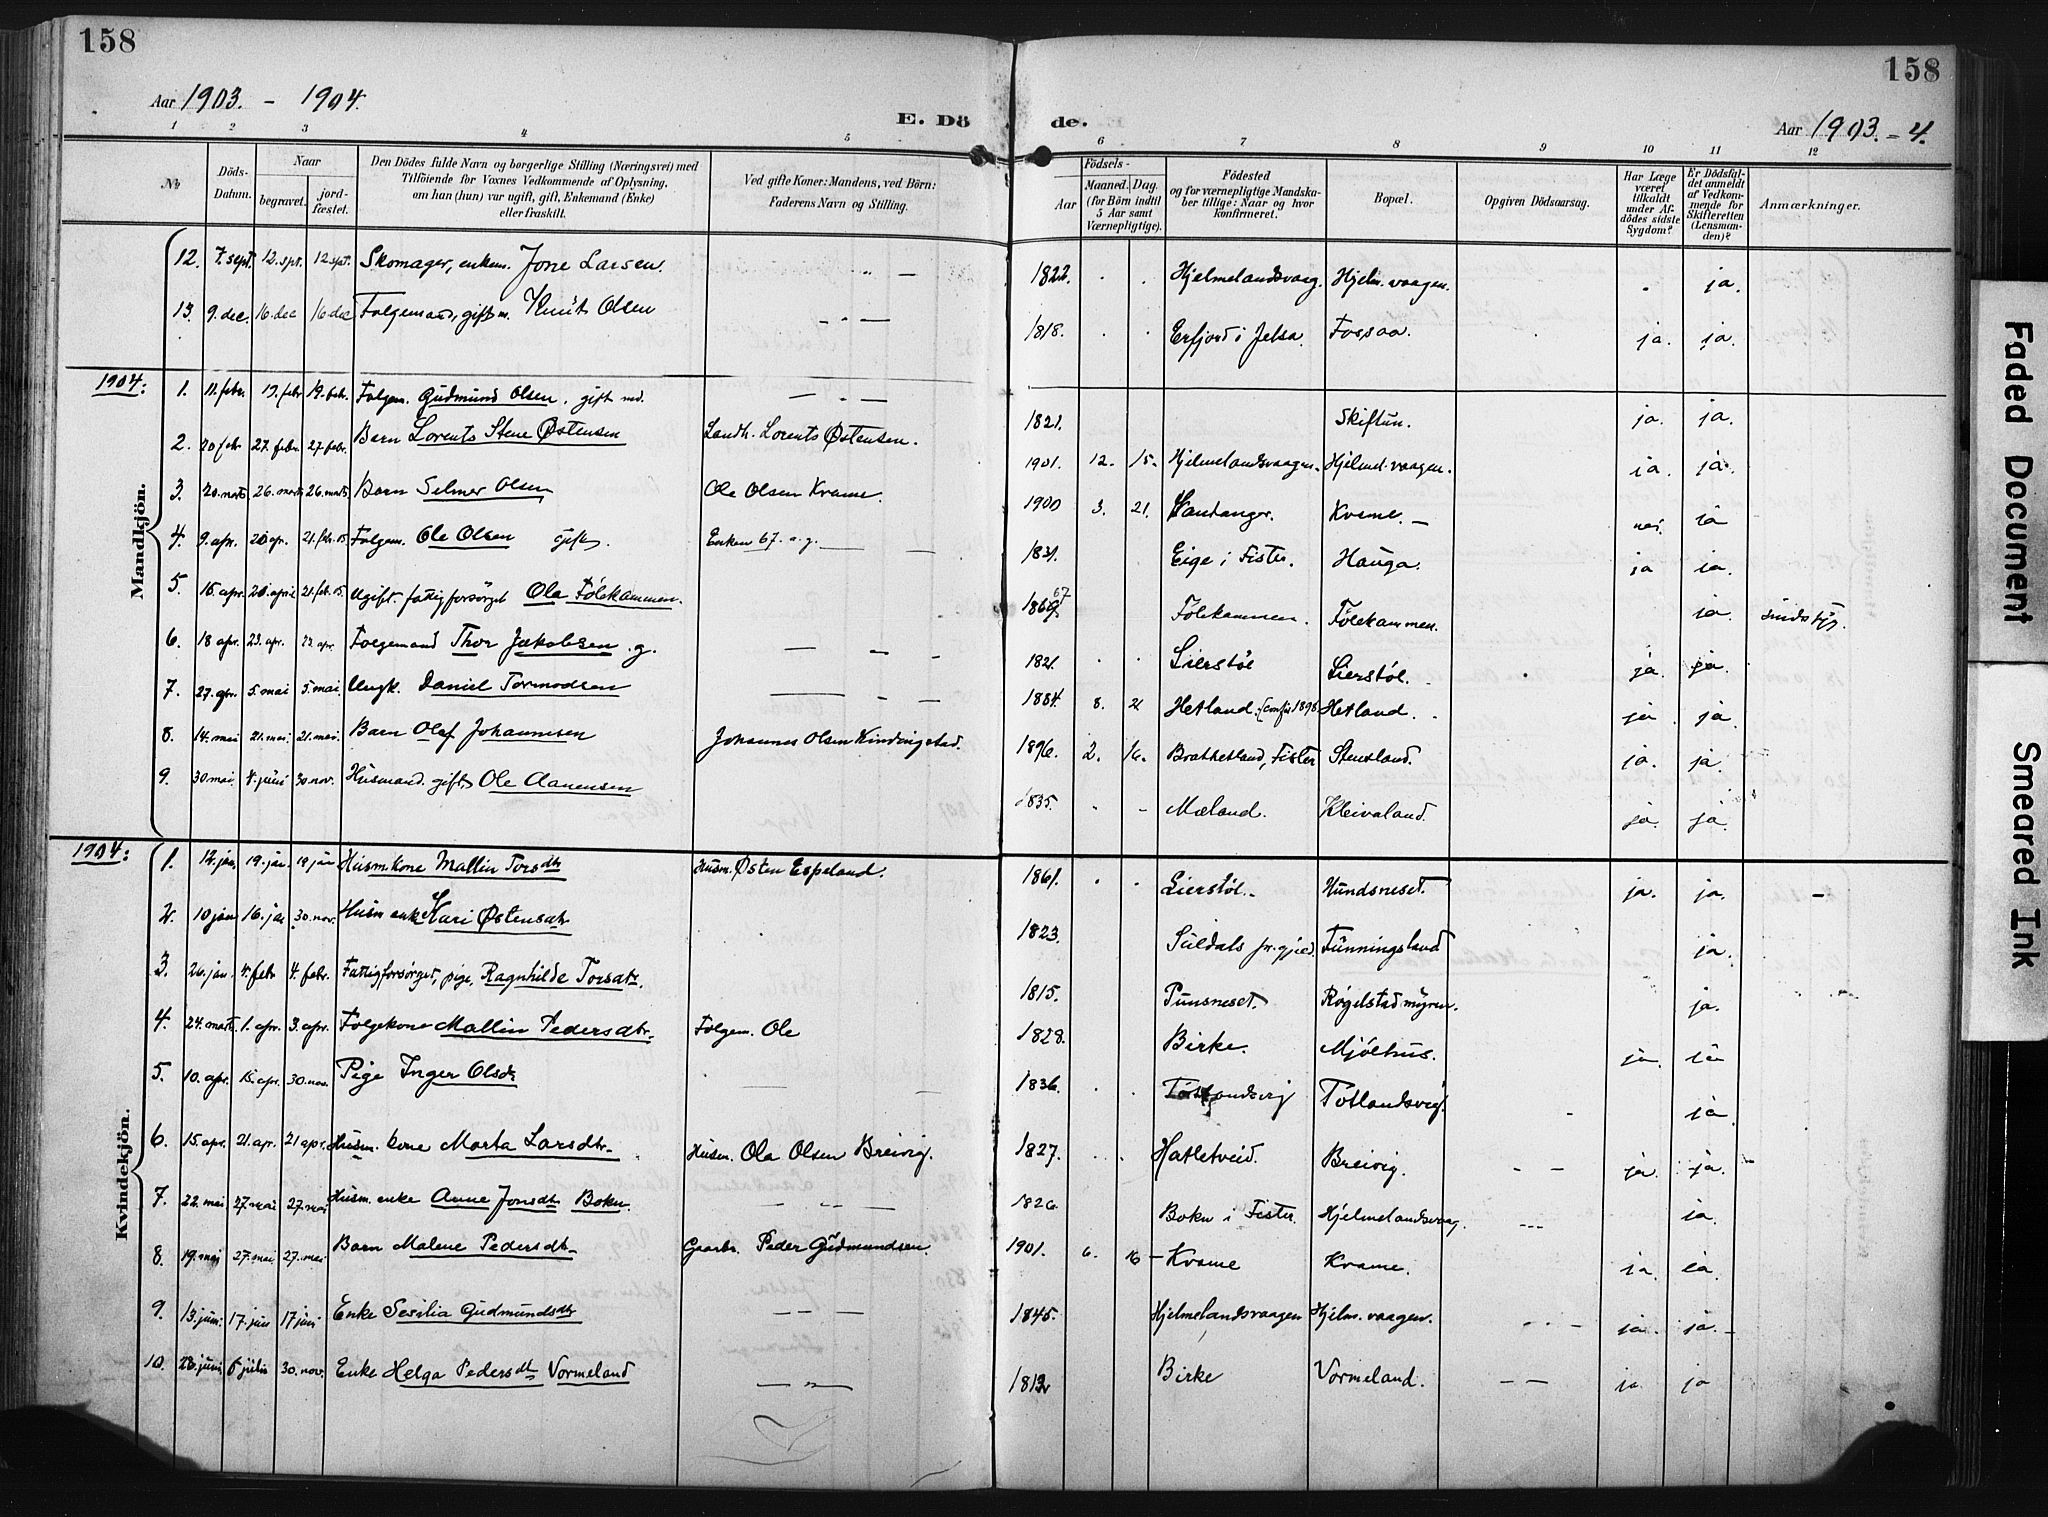 158
158
Aar 1903. - 1904.
E. Dö
de.
Aar 1903. - 4.
1 2 3 4 5 6 7 8 9 10 11 12
No
Döds-Datum.
Naar
begravet.
jord-fæstet.
Den Dödes fulde Navn og borgerlige Stilling (Næringsvei) med
Tilföiende for Voxnes Vedkommende af Oplysning,
om han (hun) var ugift, gift, Enkemand (Enke)
eller fraskilt.
Ved gifte Koner: Mandens, ved Börn:
Faderens Navn og Stilling.
Födsels-
Aar
Maaned. Dag.
(for Börn indtil
5 Aar samt
Værnepligtige).
Födested
og for værnepligtige Mandska-
ber tillige: Naar og hvor
konfirmeret.
Bopæl.
Opgiven Dödsaarsag.
Har Læge
været
tilkaldt
under Af-
dödes sidste
Sygdom?
Er Dödsfal-
det anmeldt
af Vedkom-
mende for
Skifteretten
(Lensman-
den)?
Anmærkninger.
Mandkjön.
12. 7. sept. 12. spt. 12 spt. Skomager, enkem. Jone Larsen. 1822. Hjelmelandsvaag. Hjelm. vaagen. ja.
13. 9. dec. 16. dec 16. dec Folgemand, gift m. Knut Olsen 1818. Erfjord i Jelsa. Fossaa. ja. ja.
1904:
1. 11. febr. 19. febr 19. febr. Folgem. Gudmund Olsen, gift 1821. Skiftun. ja. ja.
2. 20 febr 27. febr. 27. febr. Barn Lorents Stene Østensen Landh. Lorents Østensen. 1901. 12. 15. Hjelmelandsvaagen. Hjelmel. vaagen. ja. ja.
3. 20. marts 26. marts 26. marts Barn Selmer Olsen Ole Olsen Kvame. 1900 3. 21. Kvame. nei. ja
4. 9. apr. 20 apr. 21. febr. 05 Folgem. Ole Olsen gift. Enken 67. a. g. 1831. Eige i Fister. Hauga. ja ja.
5. 15. apr. 20. april 21. feb. 05. Ugift. fattigforsørget Ola Følekammen. 1869. 67 Følekammen. Følekammen. ja. sindssyg.
6. 18 apr. 23. apr. apr. Folgemand Thor Jakobsen. g. 1821. Lierstøl Lierstøl. ja. ja.
7. 27. apr. 5. mai 5. mai Ungk. Daniel Tormodsen 1884. 8. 21 Hetland. (Conf. 1898. Hetland. ja ja.
8. 14. mai 21. mai. 21. mai. Barn Olaf Johannesen Johannes Olsen Kindingstad. 1896. 2. 16. Brathetland, Fister Stensland. ja. ja.
9. 30. mai. 4. juni 30. nov. Husmand. gift. Ole Aanensen 1835. Mæland. Kleivaland. ja. ja.
1904:
Kvindekjön.
1. 12. jan. 19. jan. 19 jan Husm.kone Mallin Torsdtr Husm. Østen Espeland. 1861. Lierstøl. Hundsneset. ja. ja.
2. 10 jan 16. jan 30. nov. Husm enke Kari Østensdtr 1823. Suldals pr.gjed. Funningsland ja.
3. 26. jan. 4. febr 4. febr. Fattigforsørget, pige, Ragnhilde Torsdtr. 1815. Punsneset. Røgelstadmyren. ja.
4. 24. marts 1. apr. 3. apr. Folgekone Mallin Pedersdtr. Folgem. Ole 1828. Birke. Mjølhus. ja. ja
5. 10. apr. 15. apr. 30. nov. Pige Inger Olsdr 1836. Tøtlandsvig Tøtlandsvig. ja
6. 15. apr. 21. apr. 21 apr. Husm. kone Marta Larsdtr. Husm. Ola Olsen Breivig. 1827. Hatletveid. Breivig. ja. ja.
7. 22. mai. 27. mai 27. mai Husm. enke Anne Jonsdtr Bokn. 1826. Bokn i Fister. Hjelmelandsvaag ja.
8. 19. mai 27. mai 27. mai Barn Malene Pedersdtr Gaarbr. Peder Gudmundsen. 1901. 6. 16 Kvame Kvame. ja. ja.
9. 13. juni. 17. juni 17 juni Enke Sesilia Gudmundsdtr 1845. Hjelmelandsvaagen Hjelm. vaagen. ja. ja.
10. 28. juni 5 julie 30. nov. Enke Helga Pedersdtr Vormeland Birke Vormeland. ja. ja
Faded Document
Smeared Ink